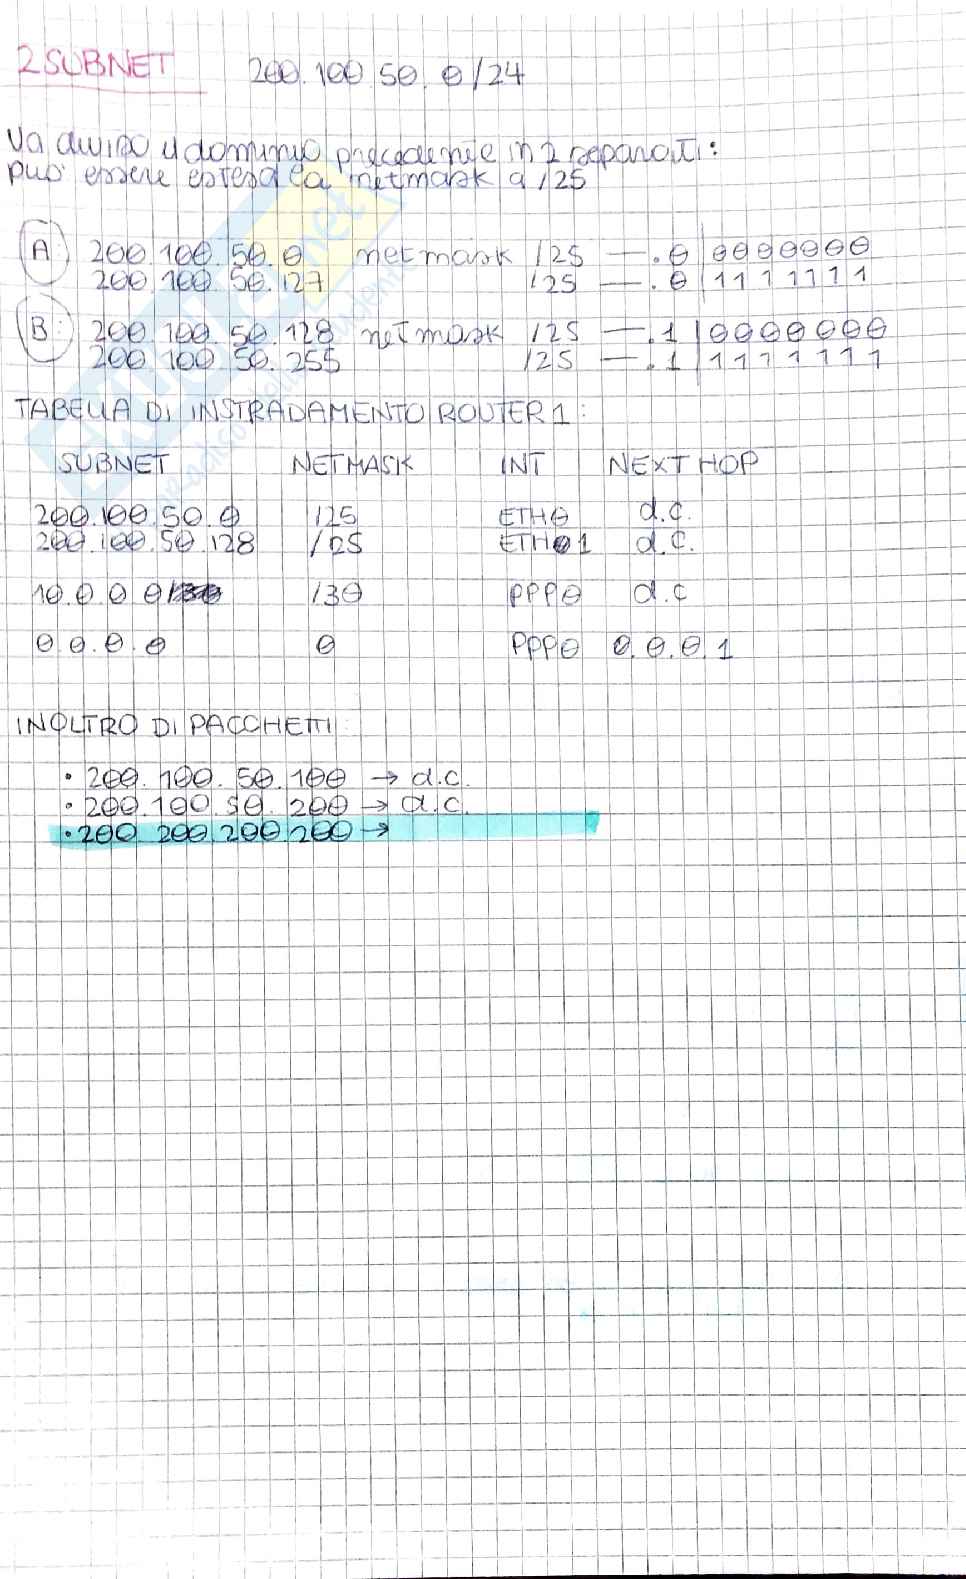 2 SUBNET 200.100.50.0/24
Va diviso il dominio precedente in 2 separati:
può essere estesa la netmask a /25
A: 200.100.50.0 netmask /25 — .0|0000000
200.100.50.127 /25 — .0|1111111
B: 200.100.50.128 netmask /25 — .1|0000000
200.100.50.255 /25 — .1|1111111
TABELLA DI INSTRADAMENTO ROUTER 1:
SUBNET NETMASK INT NEXT HOP
200.100.50.0 /25 ETH0 d.c.
200.100.50.128 /25 ETH01 d.c.
10.0.0.0 /30 PPP0 d.c
0.0.0.0 0 PPP0 0.0.0.1
INOLTRO DI PACCHETTI:
• 200.100.50.100 → d.c.
• 200.100.50.200 → d.c.
• 200.200.200.200 →